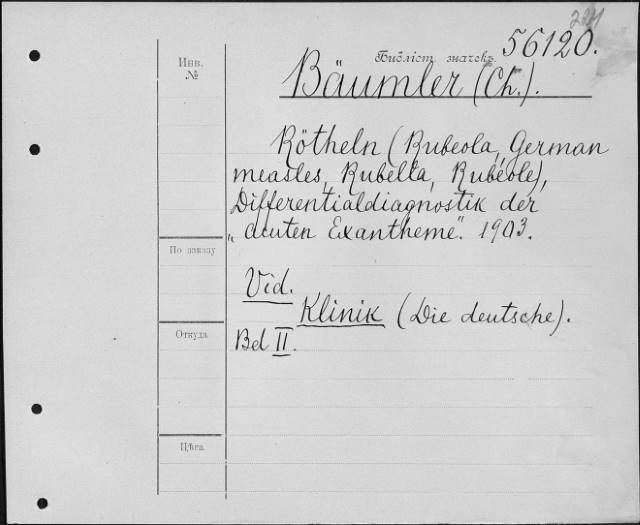 56120.
Инв.
№
Библіот. значекъ
Bäumler (Ch.).
Rötheln (Rubeola, German
measles, Rubella, Rubéole),
Differentialdiagnostik der
„acuten Exantheme". 1903.
По заказу
Vid.
Klinik (Die deutsche).
Откуда
Bd II.
Цѣна